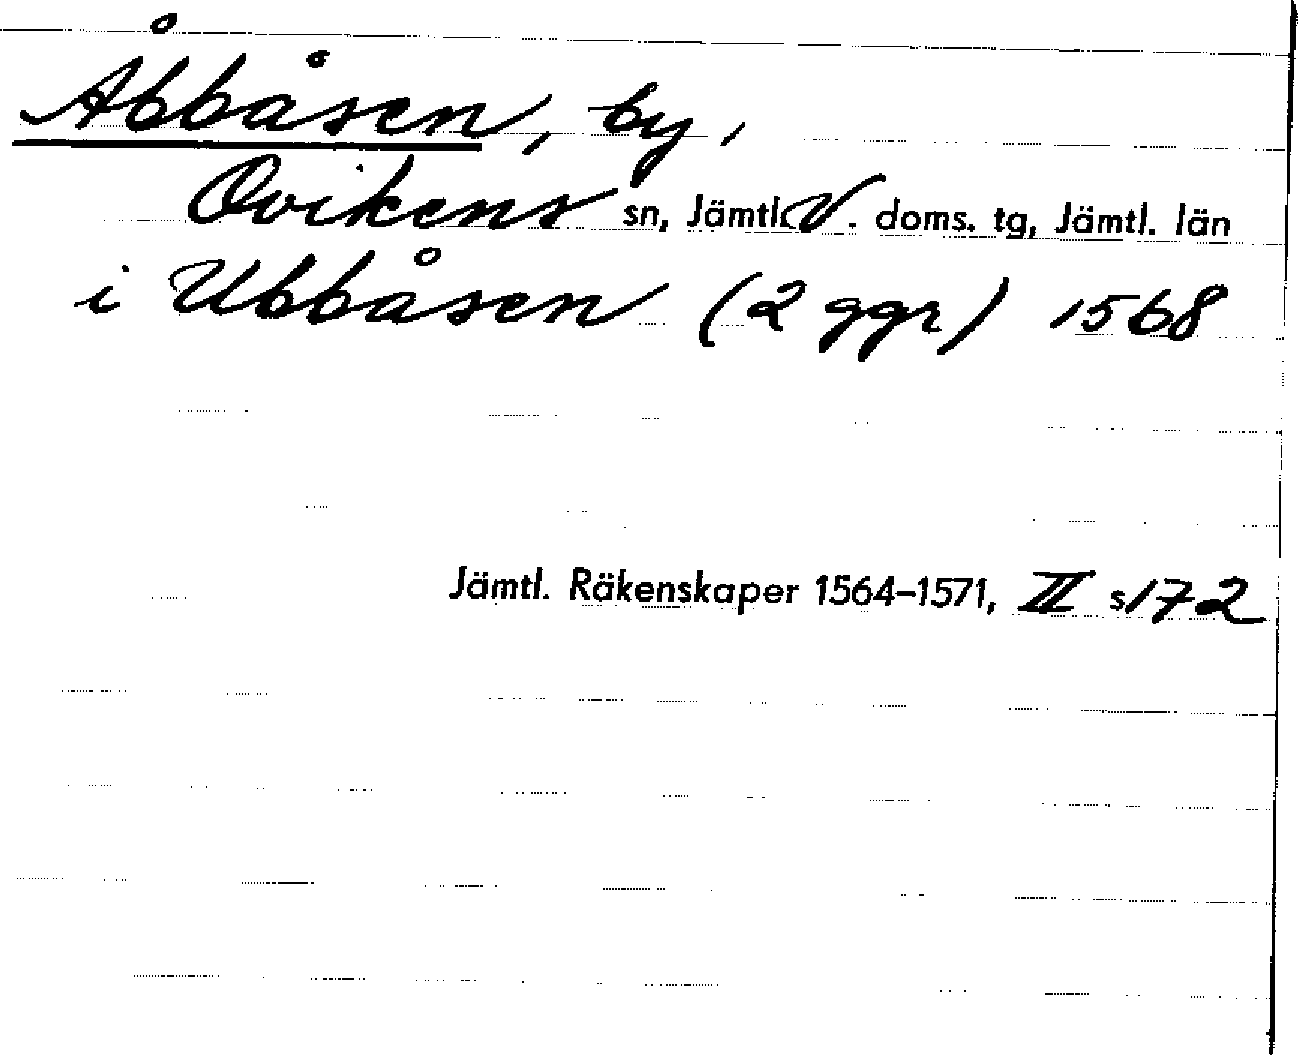 Åbbåsen, by,
Ovikens sn, Jämtl. V. doms. tg, Jämtl. län
i Ubbåsen (2 ggr) 1568
Jämtl. Räkenskaper 1564-1571, II s 172